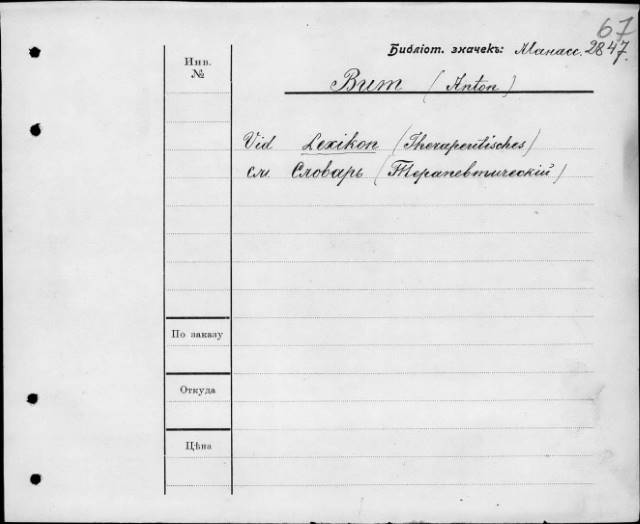 67
Библіот. значекъ: Манасс. 2847.
Инв. №
Bum (Anton)
Vid Lexikon (Therapeutisches)
см. Словарь (Терапевтическій)
По заказу
Откуда
Цѣна